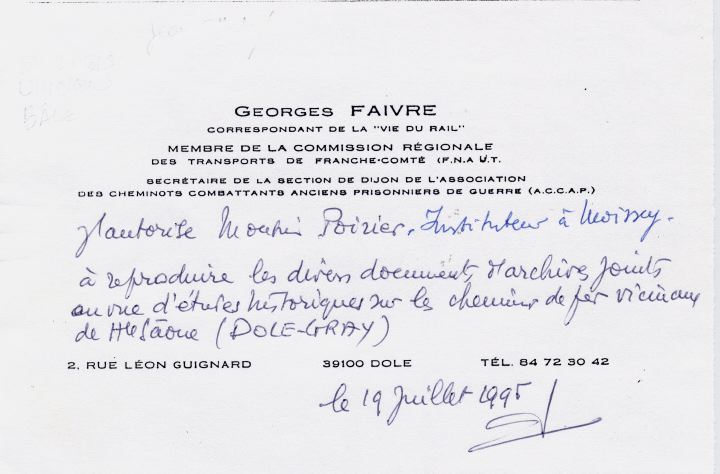 GEORGES FAIVRE
CORRESPONDANT DE LA "VIE DU RAIL"
MEMBRE DE LA COMMISSION RÉGIONALE
DES TRANSPORTS DE FRANCHE-COMTÉ (F.N.A U.T.
SECRÉTAIRE DE LA SECTION DE DIJON DE L'ASSOCIATION
DES CHEMINOTS COMBATTANTS ANCIENS PRISONNIERS DE GUERRE (A.C.C.A.P.)
J'autorise Monsieur Poirier, Instituteur à Moissey.
à reproduire les divers documents d'archives joints
au vue d'études historiques sur les chemins de fer vicinaux
de Hte Saône (DOLE-GRAY)
2, RUE LÉON GUIGNARD 39100 DOLE TÉL. 84 72 30 42
le 19 Juillet 1995